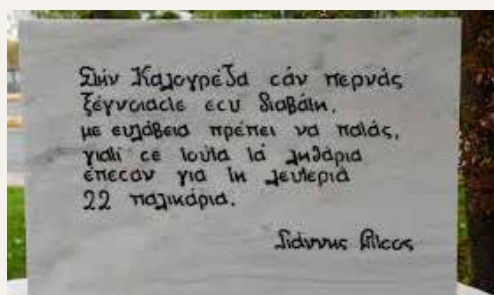 Στήν Καλογρέζα σάν περνάς
ξέγνοιαστε εσυ διαβάτη,
με ευλάβεια πρέπει να πατάς,
γιατί σε τουτα τά λιθάρια
έπεσαν για τη λευτεριά
22 παλικάρια.
Γιάννης Ρίτσος